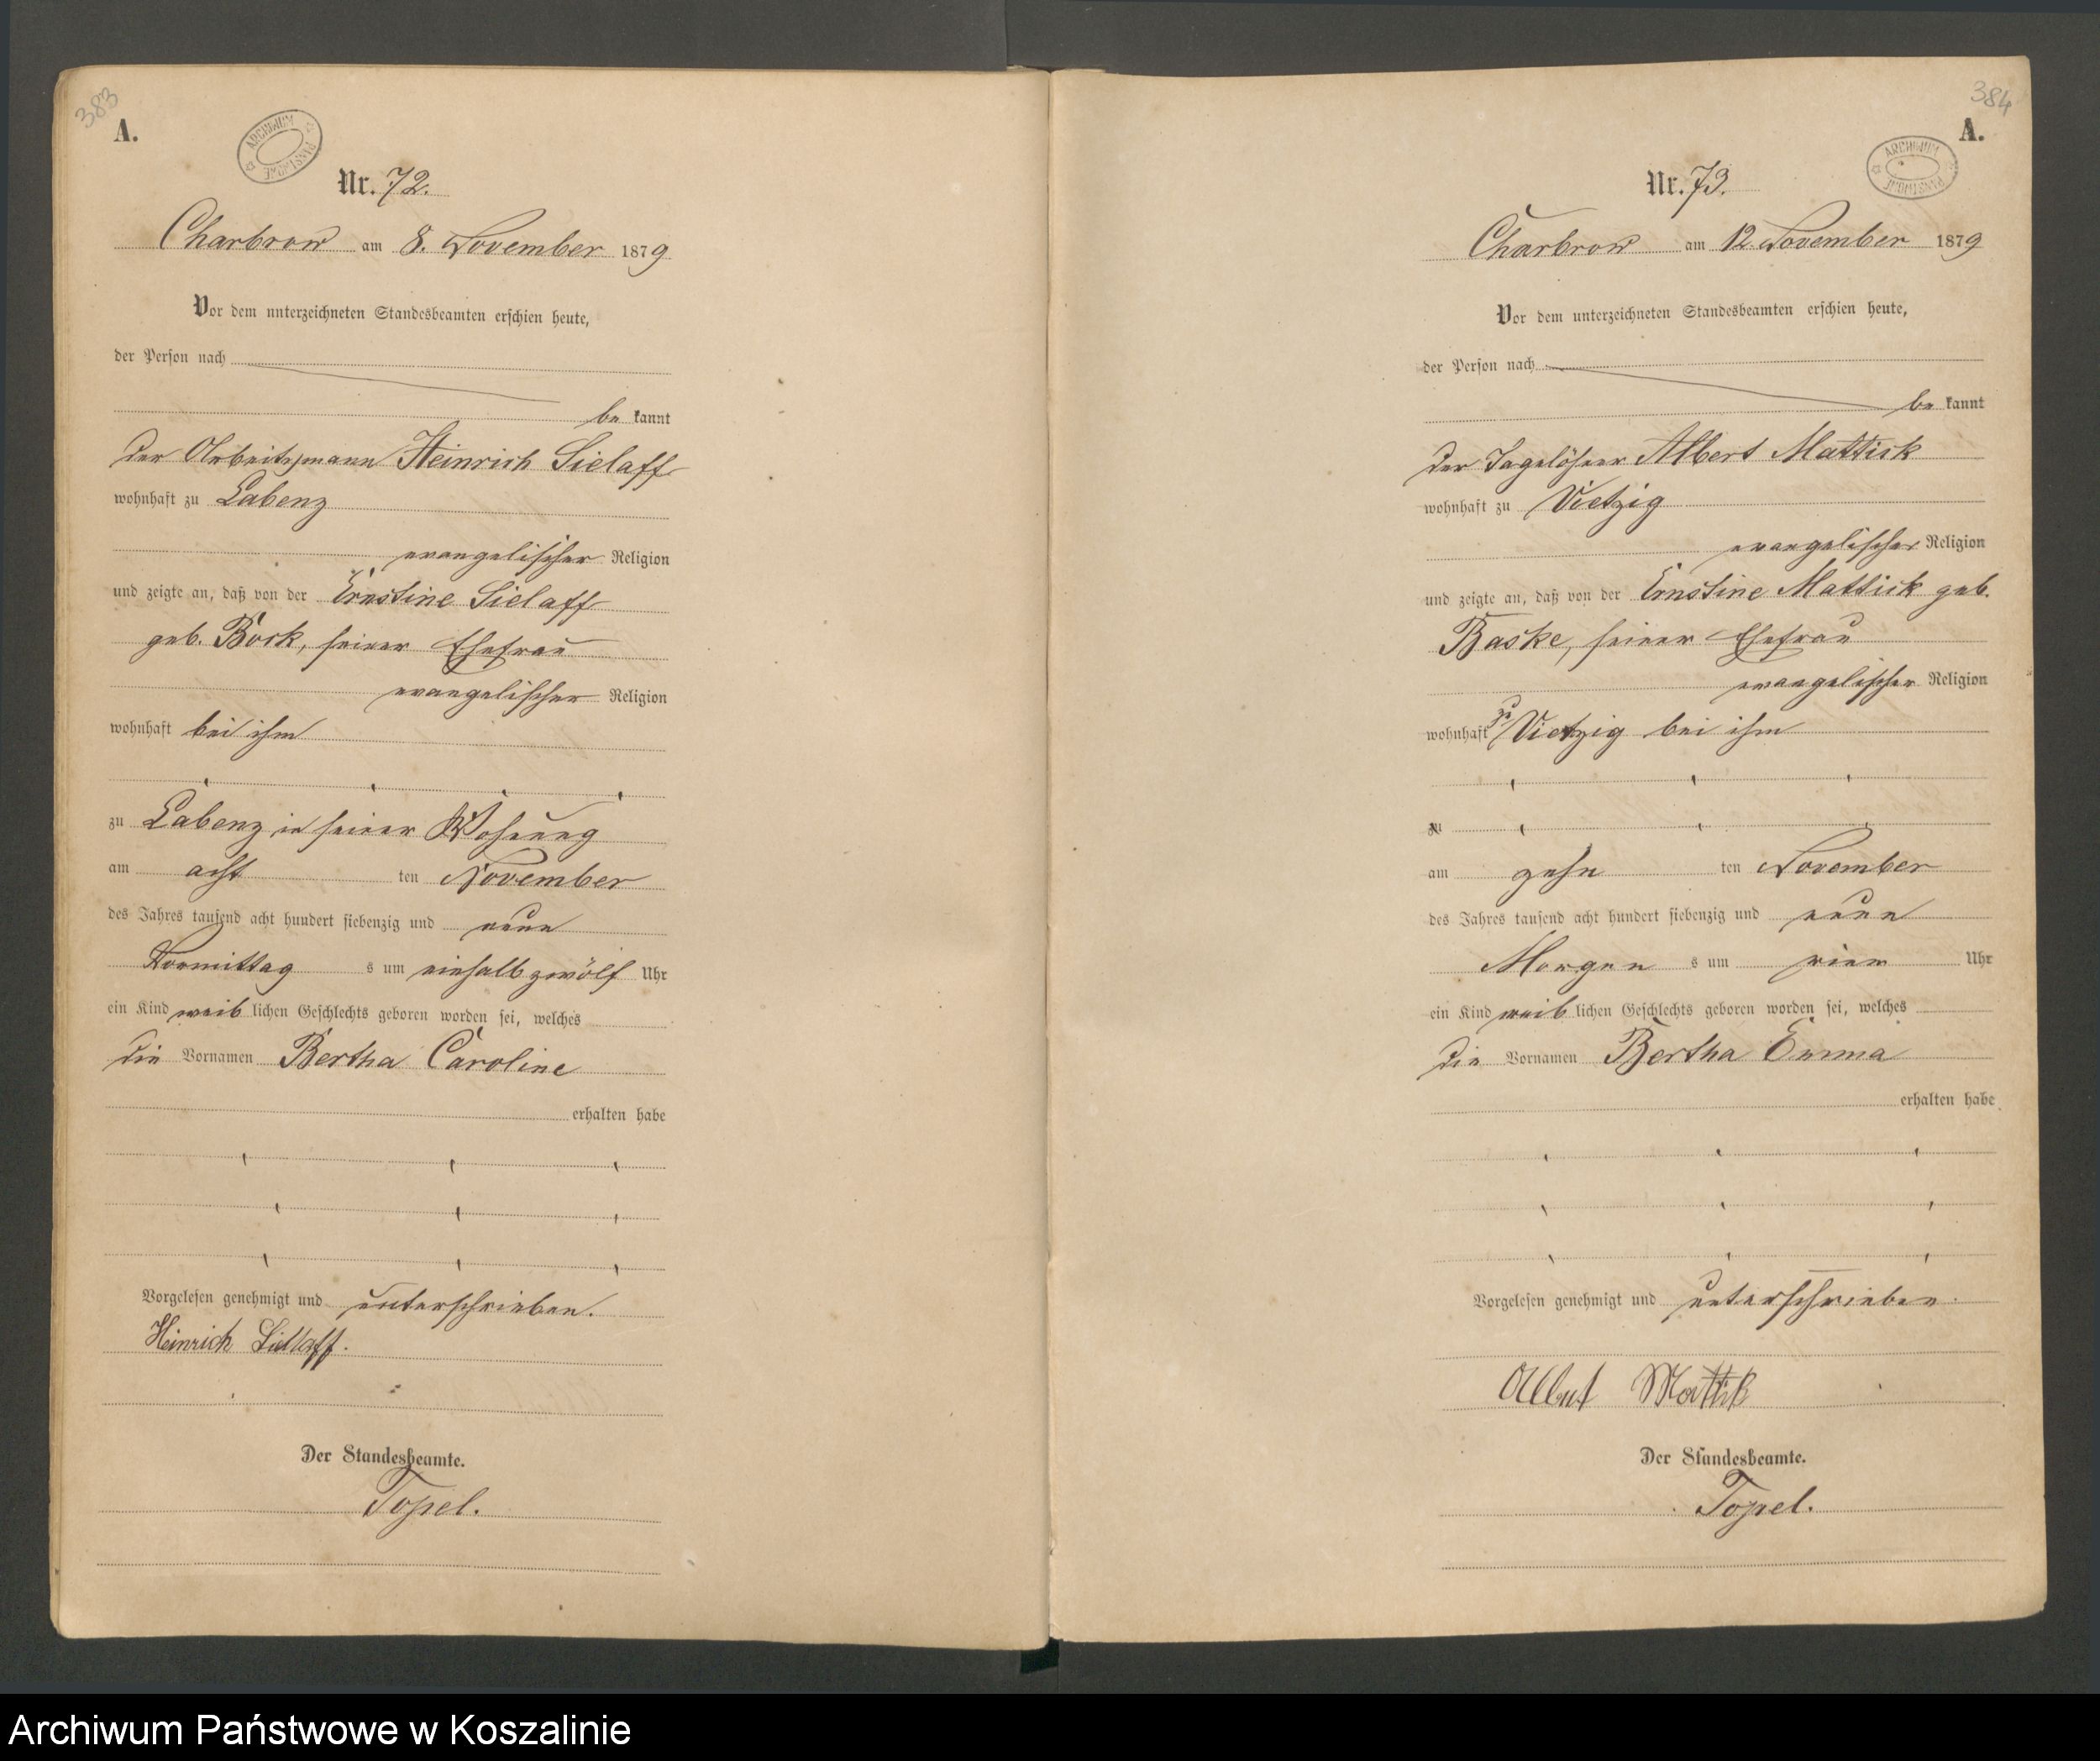 383
A.
ARCHIWUM PAŃSTWOWE
Nr. 72.
Charbrow am 8. November 1879
Vor dem unterzeichneten Standesbeamten erschien heute,
der Person nach
be kannt
der Arbeitsmann Heinrich Sielaff
wohnhaft zu Labenz
evangelischer Religion
und zeigte an, daß von der Ernestine Sielaff
geb. Bork, seiner Ehefrau
evangelischer Religion
wohnhaft bei ihm
zu Labenz in seiner Wohnung
am acht ten November
des Jahres tausend acht hundert siebenzig und neun
Vormittag s um einhalb zwölf Uhr
ein Kind weib lichen Geschlechts geboren worden sei, welches
die Vornamen Bertha Caroline
erhalten habe
Vorgelesen genehmigt und unterschrieben.
Heinrich Siellaff.
Der Standesbeamte.
Topel.
384
A.
ARCHIWUM PAŃSTWOWE
Nr. 73.
Charbrow am 12. November 1879
Vor dem unterzeichneten Standesbeamten erschien heute,
der Person nach
be kannt
der Tagelöhner Albert Mattick
wohnhaft zu Vietzig
evangelischer Religion
und zeigte an, daß von der Ernstine Mattick geb.
Baske, seiner Ehefrau
evangelischer Religion
wohnhaft zu Vietzig bei ihm
zu
am zehn ten November
des Jahres tausend acht hundert siebenzig und neun
Morgen s um vier Uhr
ein Kind weib lichen Geschlechts geboren worden sei, welches
die Vornamen Bertha Emma
erhalten habe
Vorgelesen genehmigt und unterschrieben.
Albert Mattik
Der Standesbeamte.
Topel.
Archiwum Państwowe w Koszalinie